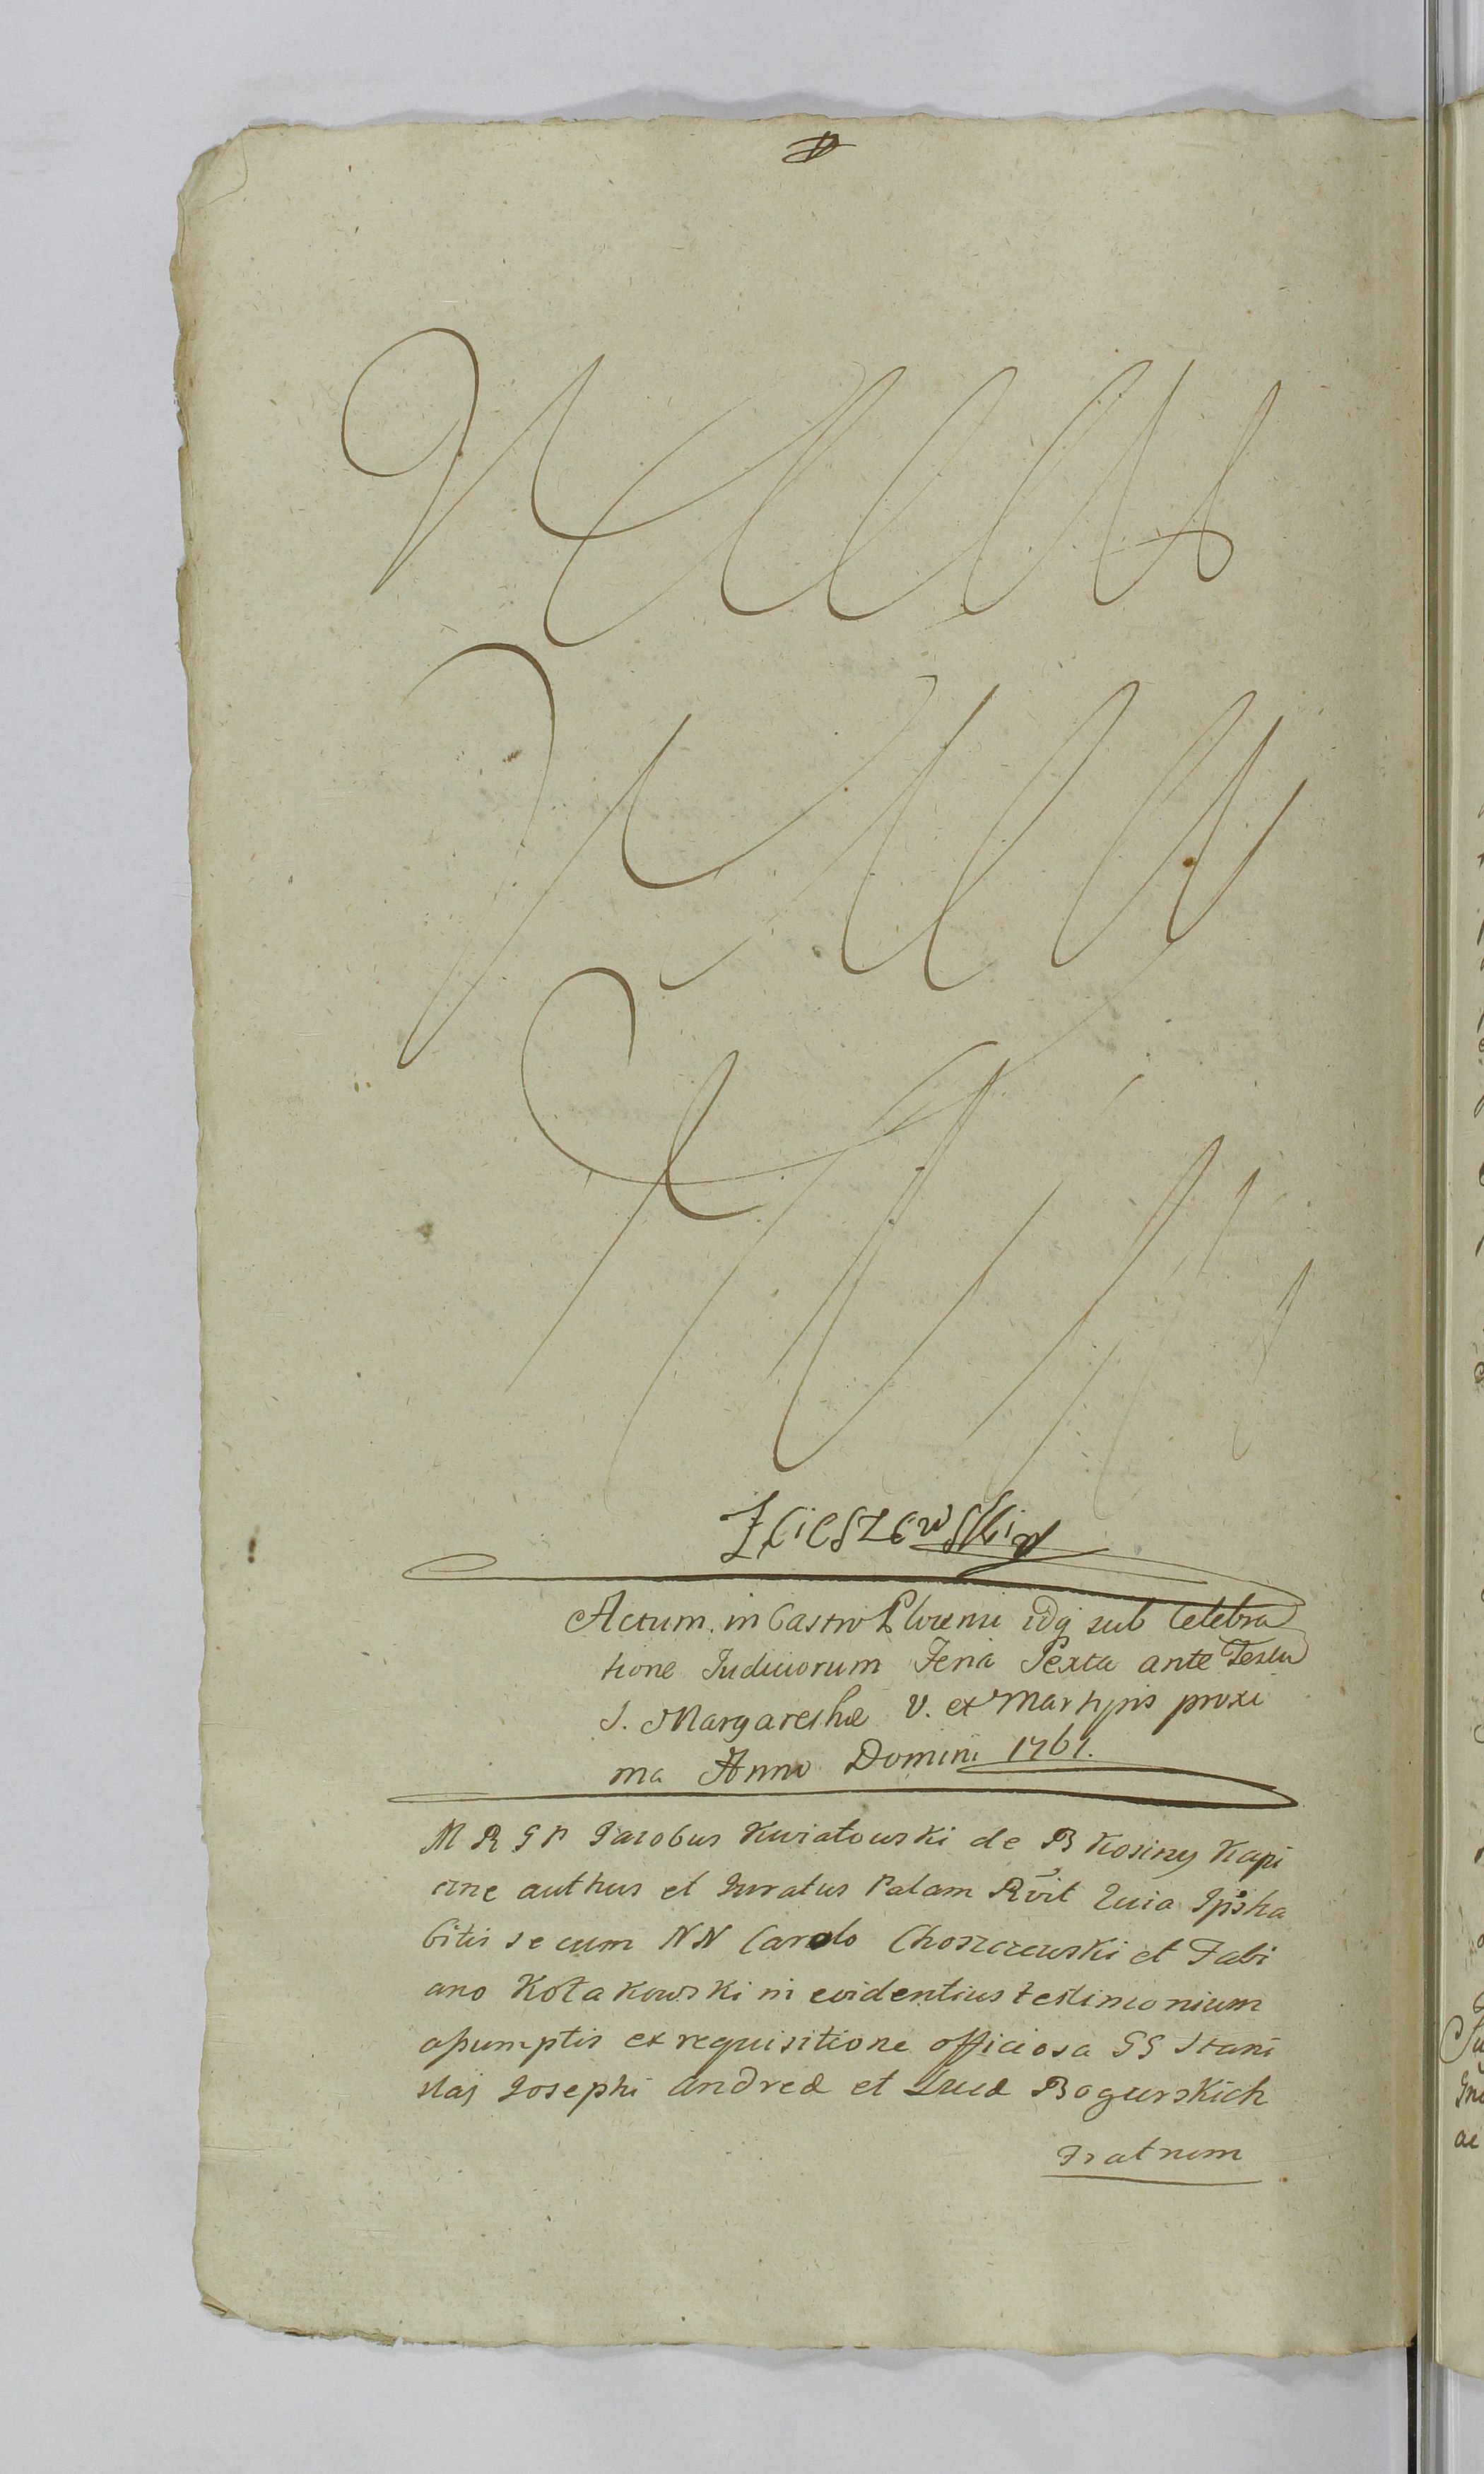 Zcieszewski
Actum in Castro Plocensi idq sub Celebra
tione Iudiciorum Feria Sexta ante Festu
S. Margarethæ V. et Martyris proxi
ma Anno Domini 1761.
M R G P Jacobus Kwiatowski de B Kosiny Kapi
czne authus et Juratus Palam Rvit Quia Ipse ha
bitis secum NN Carolo Choszczewski et Fabi
ano Kołakowski in evidentius testimonium
assumptis ex requisitione officiosa GG Stani
slaj Josephi Andreæ et Lucæ Bogurskich
Fratrum